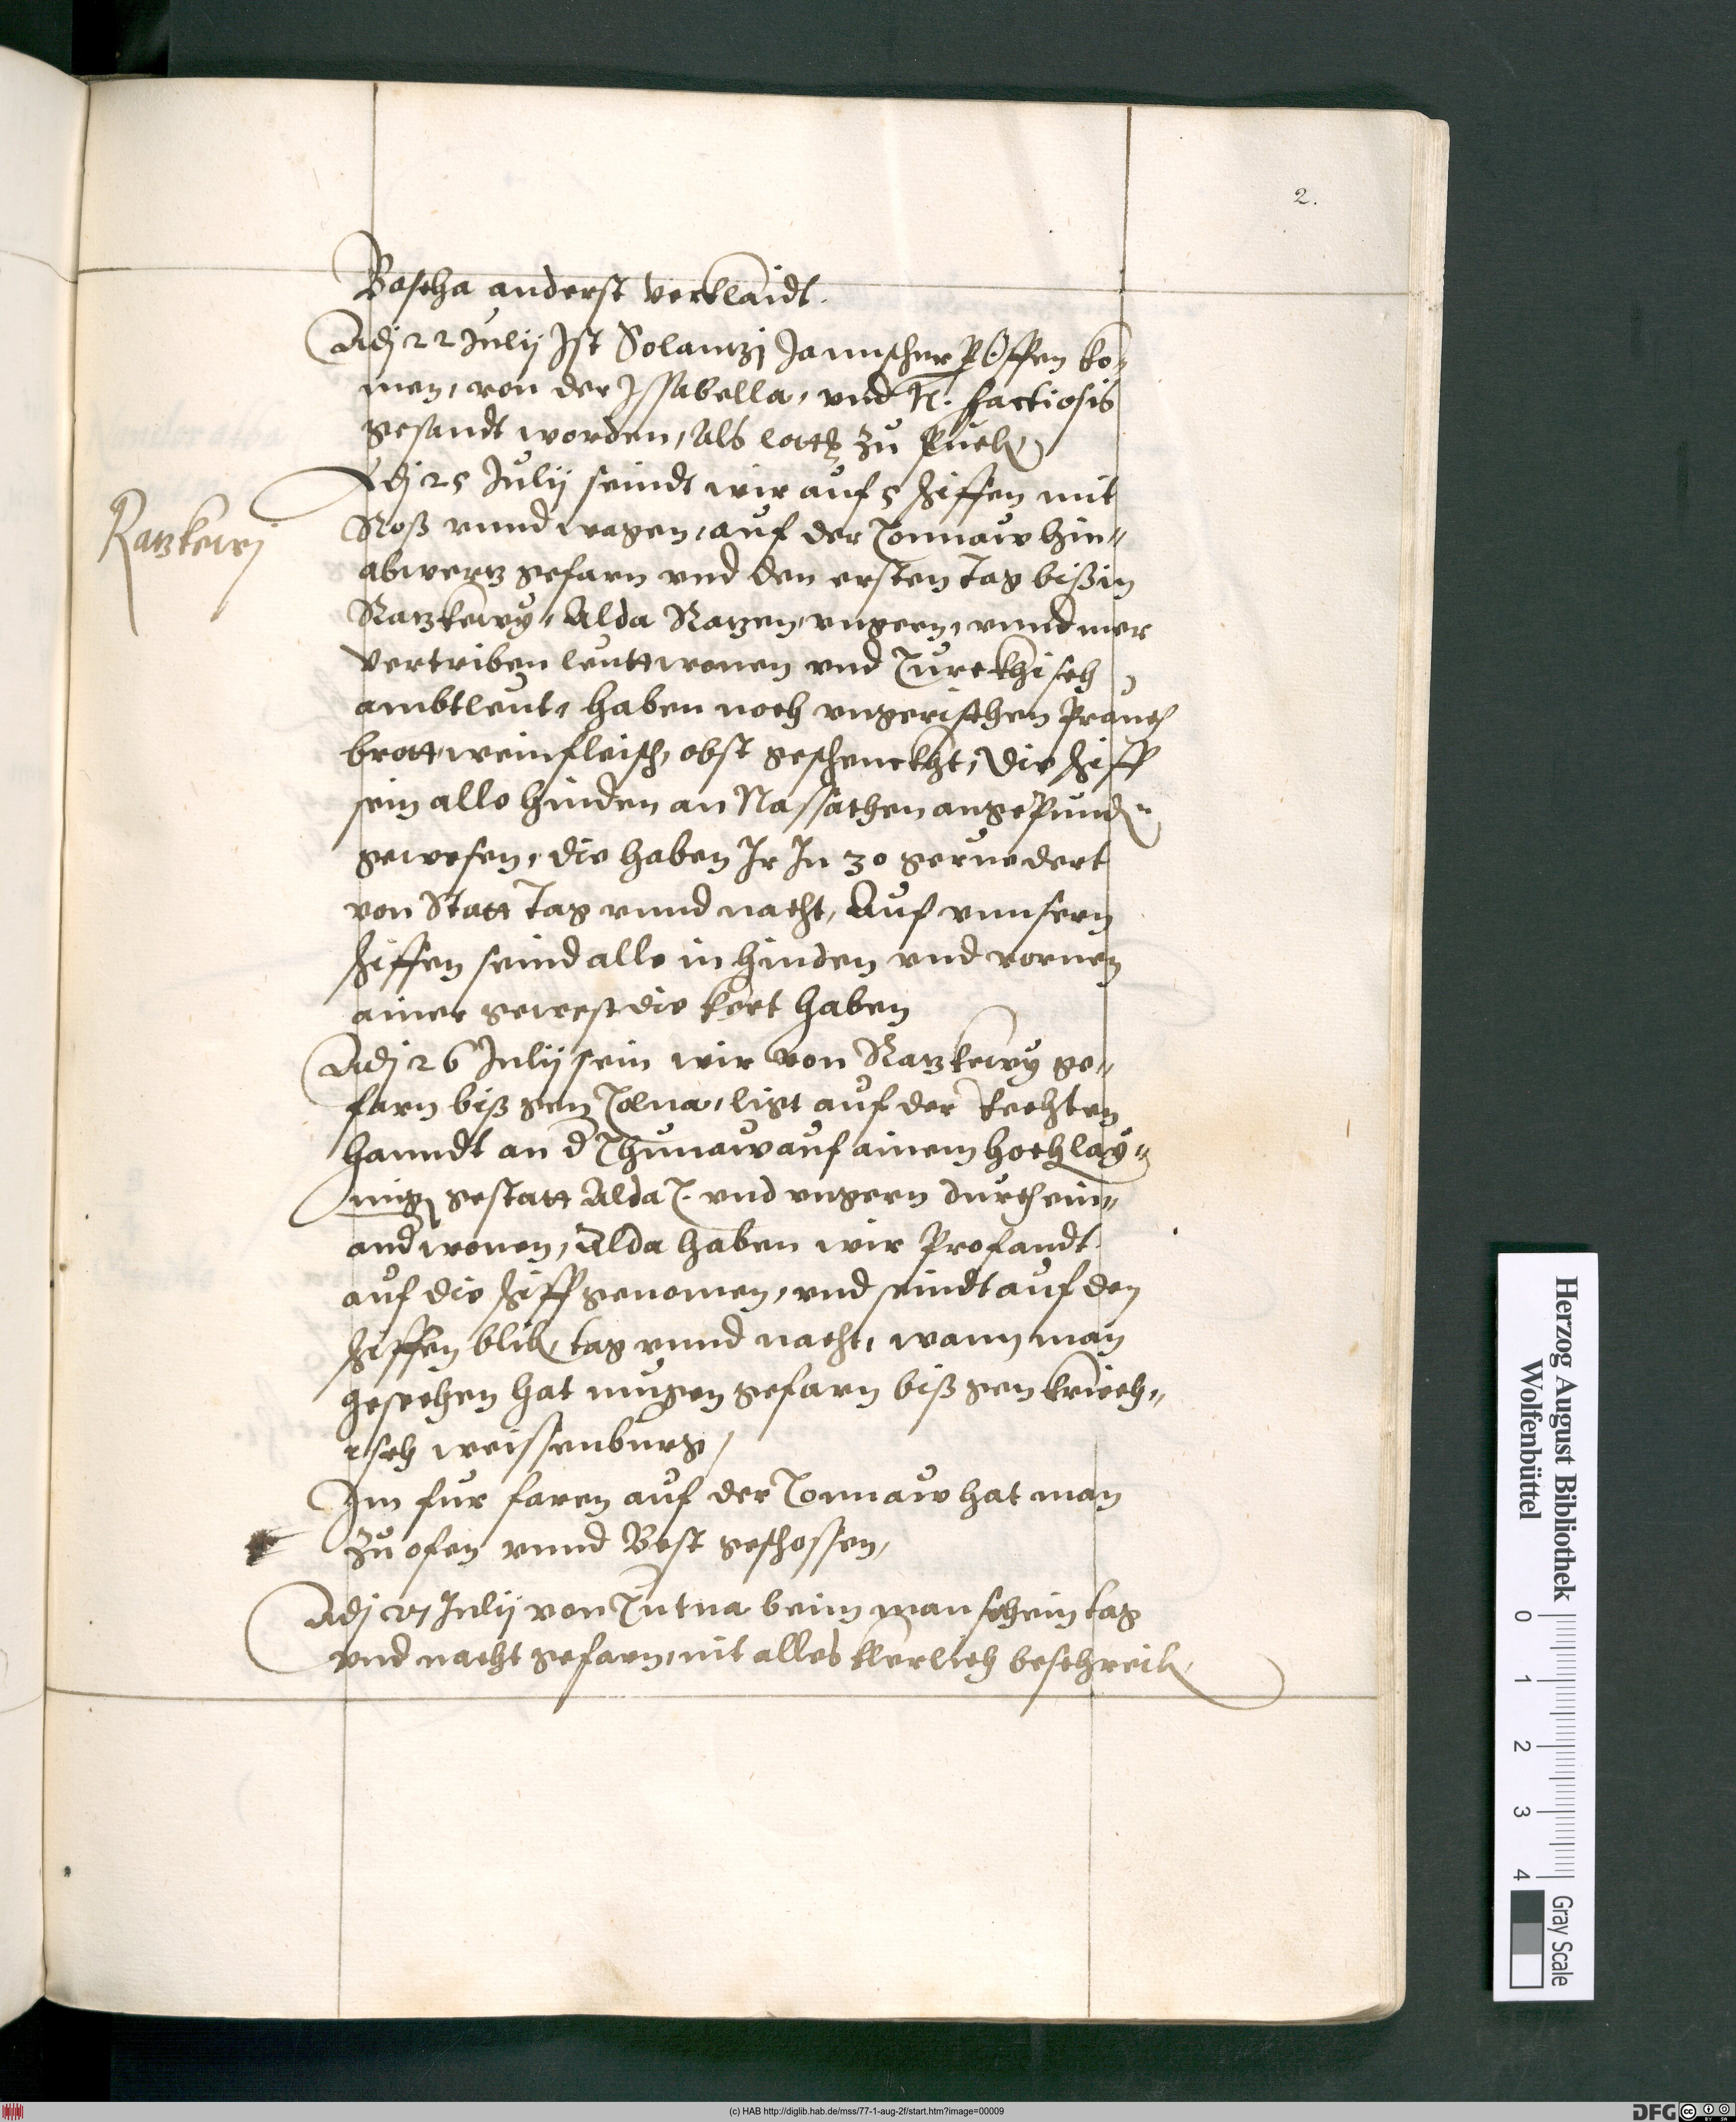 2.
Bascha anderst verklaidt.
Adj 22 Julij Ist Solantzj Janusch per Offen ko-
men, von der Issabella, vnd K. factiosis
gesandt worden, als zu
Adj 25 Julij seindt wir auf 5 ziffen mit
Roß vnnd wagen, auf der Tonnaw hin-
abwertz gefarn vnd den ersten tag biß in
Ratzkewj
Ratzkewy, Alda Ratzen, vngern, vnnd mer
vertriben leutt wonen vnd Turckhisch
ambtleut, haben noch vngerischen Prauch
brott wein fleisch, obst geschenckht, Die ziff
sein alle hinden an Nassathen angepund
gewesen, die haben Ir In 30 geruedert
von Statt tag vnnd nacht, Auf vnnsern
ziffen seind alle in hinden vnd vornen
ainer gewest die kert haben
Adj 26 Julij sein wir von Ratzkewy ge-
farn biß gen Tolna, ligt auf der Rechten
hanndt an d Thunaw auf ainem hoch lay-
mig gestatt Alda T. vnd vngern durch ein-
and wonen, Alda haben wir Profandt
auf die ziff genomen, vnd seindt auf den
ziffen blib tag vnnd nacht, wann man
gesechen hat mugen gefarn biß gen kriech-
isch weissenburg,
Im fur faren auf der Tonnaw hat man
zu ofen vnnd Best geschossen,
Adj 27 Julij von Tutna beim manschein tag
vnd nacht gefarn, nit alles klerlich beschreib
Herzog August Bibliothek
Wolfenbüttel
0 1 2 3 4
Gray Scale
(c) HAB http://diglib.hab.de/mss/77-1-aug-2f/start.htm?image=00009
DFG